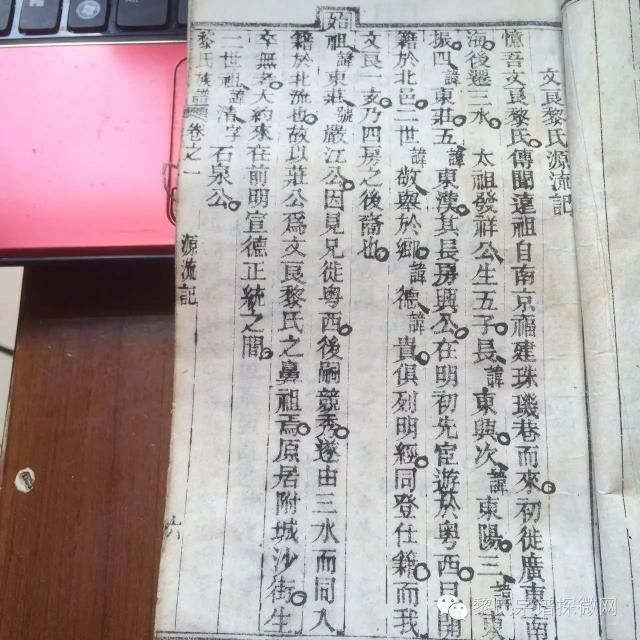 文良黎氏源流記
憶吾文良黎氏傳聞遠祖自南京福建珠璣巷而來初徙廣東南
海後遷三水太祖發祥公生五子長諱東興次諱東陽三諱東
振四諱東莊五諱東漢其長房興公在明初先宦遊於粵西日開
籍於北邑二世諱敬與於鄉諱德諱貴俱列明經同登仕籍而我
文良一支乃四房之後裔也
始祖諱東莊號嚴江公因見兄徙粵西後嗣競秀遂由三水而同入
籍於北流也故以莊公為文良黎氏之鼻祖焉原居附城沙街生
卒無考大約來在前明宣德正統之間
二世祖諱清字石泉公
黎氏族譜 卷之一 源流記 六
黎氏宗谱探微网